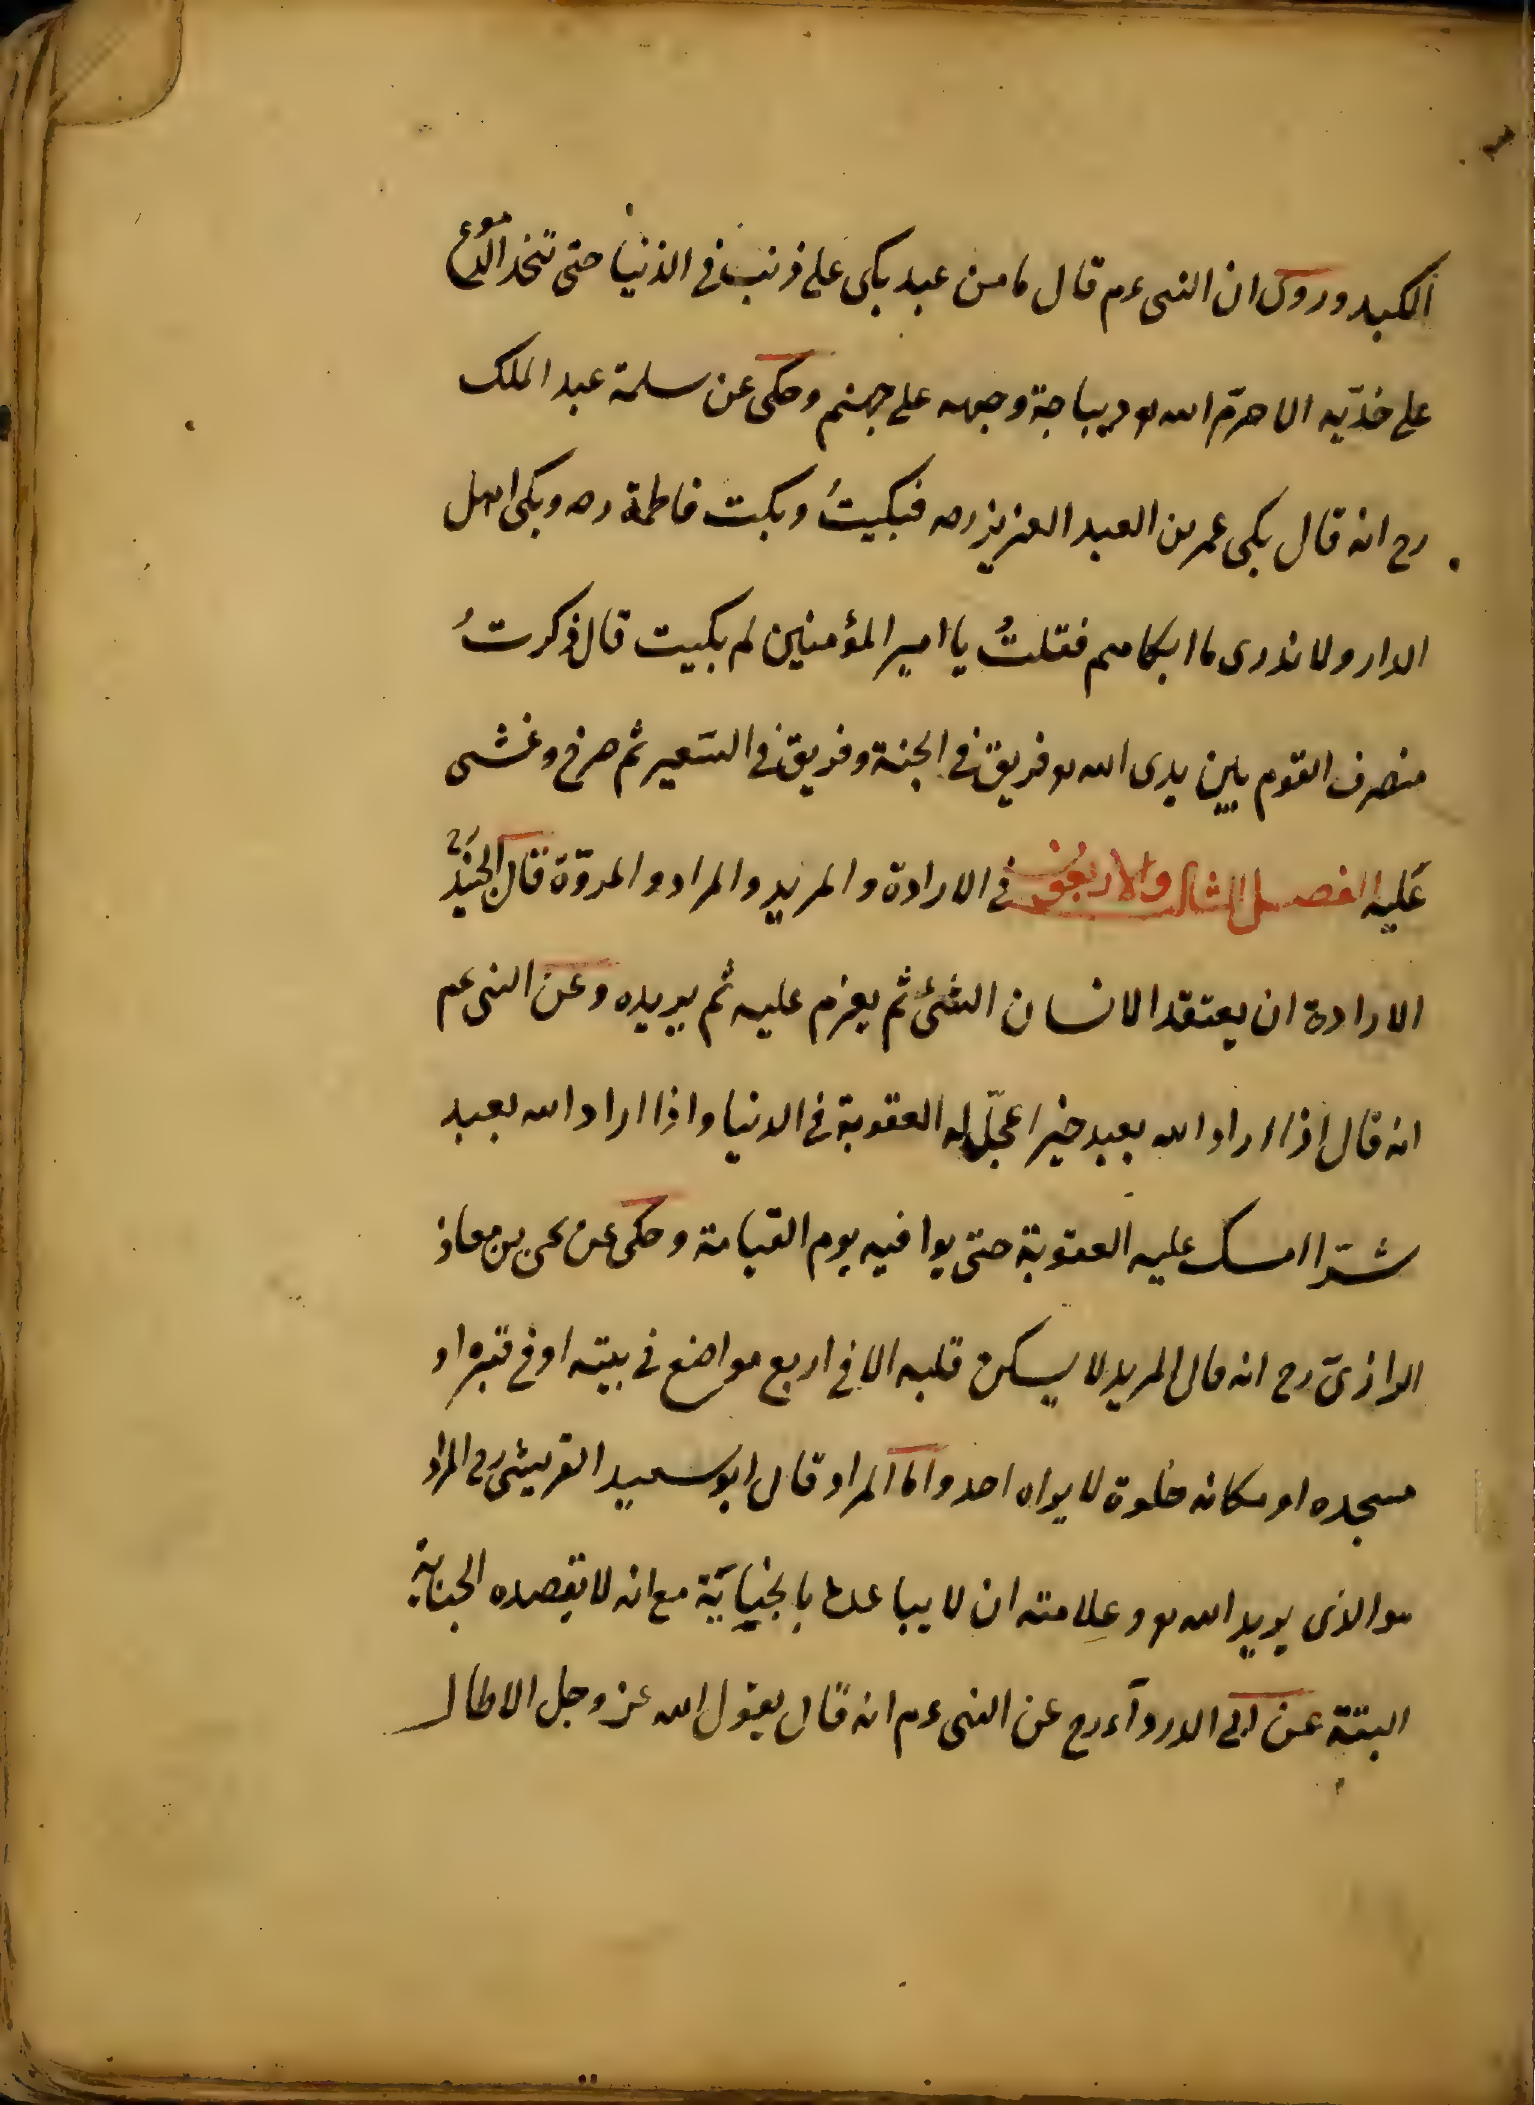 الكبد وروى ان النبى عم قال ما من عبد بكى على ذنب فى الدنيا حتى تتخذ الدموع
على خدّيه الا حرّم الله تع ديباجة وجهه على جهنم وحكى عن سلمة عبد الملك
رح انه قال بكى عمر بن العبد العزيز رصه فبكيتُ وبكت فاطمة رصه وبكى اهل
الدار ولا ندرى ما ابكاهم فقلتُ يا امير المؤمنين لم بكيت قال ذكرتُ
منصرف القوم بين يدى الله تع فريق فى الجنة وفريق فى السّعير ثم صرخ وغشى
عليه الفصل الثالث والاربعون فى الارادة والمريد والمراد والمروّة قال الجنيد رح
الارادة ان يعتقد الانسان الشئ ثم يعزم عليه ثم يريده وعن النبى عم
انه قال اذا اراد الله بعبد خيرا عجّل له العقوبة فى الدنيا واذا اراد الله بعبد
شرّا امسك عليه العقوبة حتى يوافيه يوم القيامة وحكى عن يحيى بن معاذ
الرازىّ رح انه قال المريد لا يسكن قلبه الا فى اربع مواضع فى بيته او فى قبره او
مسجده او مكانه خلوة لا يراه احد واما المراد قال ابو سعيد القريشى رح المراد
هو الذى يريد الله تع وعلامته ان لا يباعده بالجناية مع انه لا يقصده الجناية
البتة عن ابى الدردآء رح عن النبى عم انه قال يقول الله عز وجل الا طال